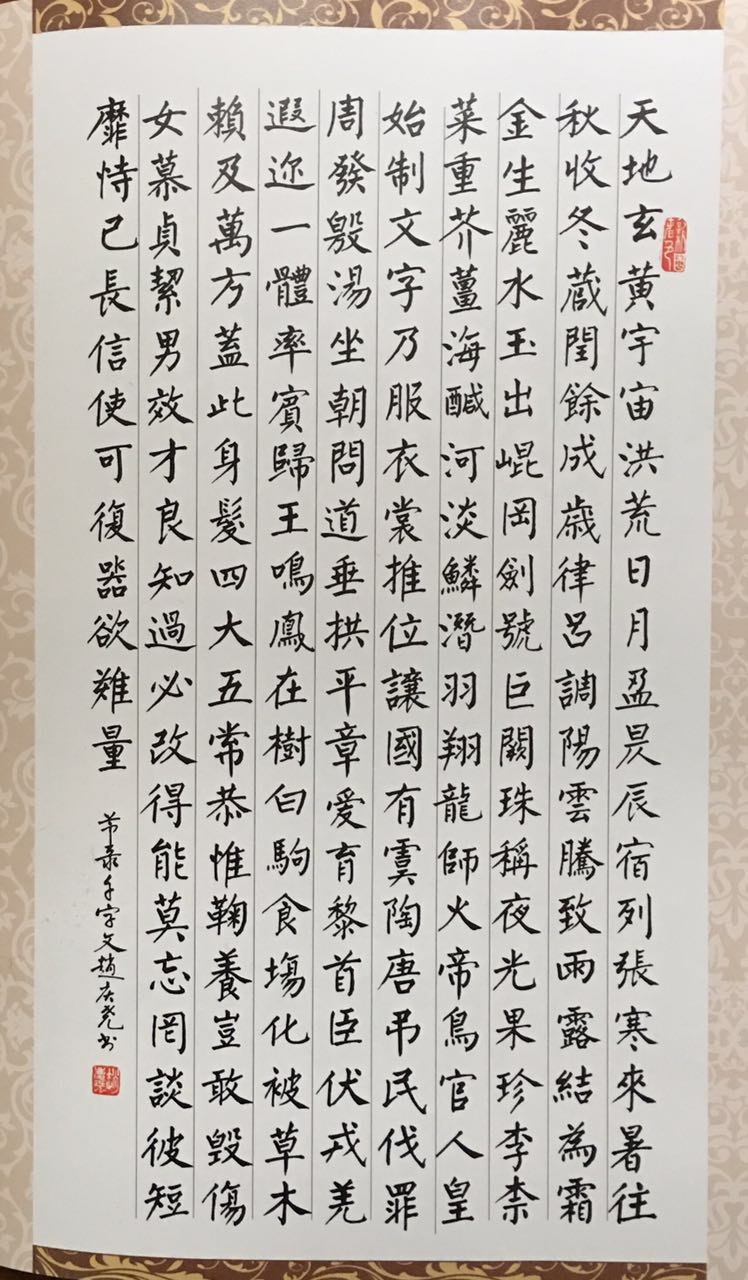 天地玄黃宇宙洪荒日月盈昃辰宿列張寒來暑往
秋收冬蔵閏餘成歲律呂調陽雲騰致雨露結為霜
金生麗水玉出崐岡劍號巨闕珠稱夜光果珍李柰
菜重芥薑海醎河淡鱗潛羽翔龍師火帝鳥官人皇
始制文字乃服衣裳推位讓國有虞陶唐吊民伐罪
周發殷湯坐朝問道垂拱平章愛育黎首臣伏戎羌
遐迩一體率賓歸王鳴鳳在樹白駒食場化被草木
賴及萬方蓋此身髮四大五常恭惟鞠養豈敢毀傷
女慕貞絜男效才良知過必改得能莫忘罔談彼短
靡恃己長信使可復器欲難量
节录千字文趙庆尧书